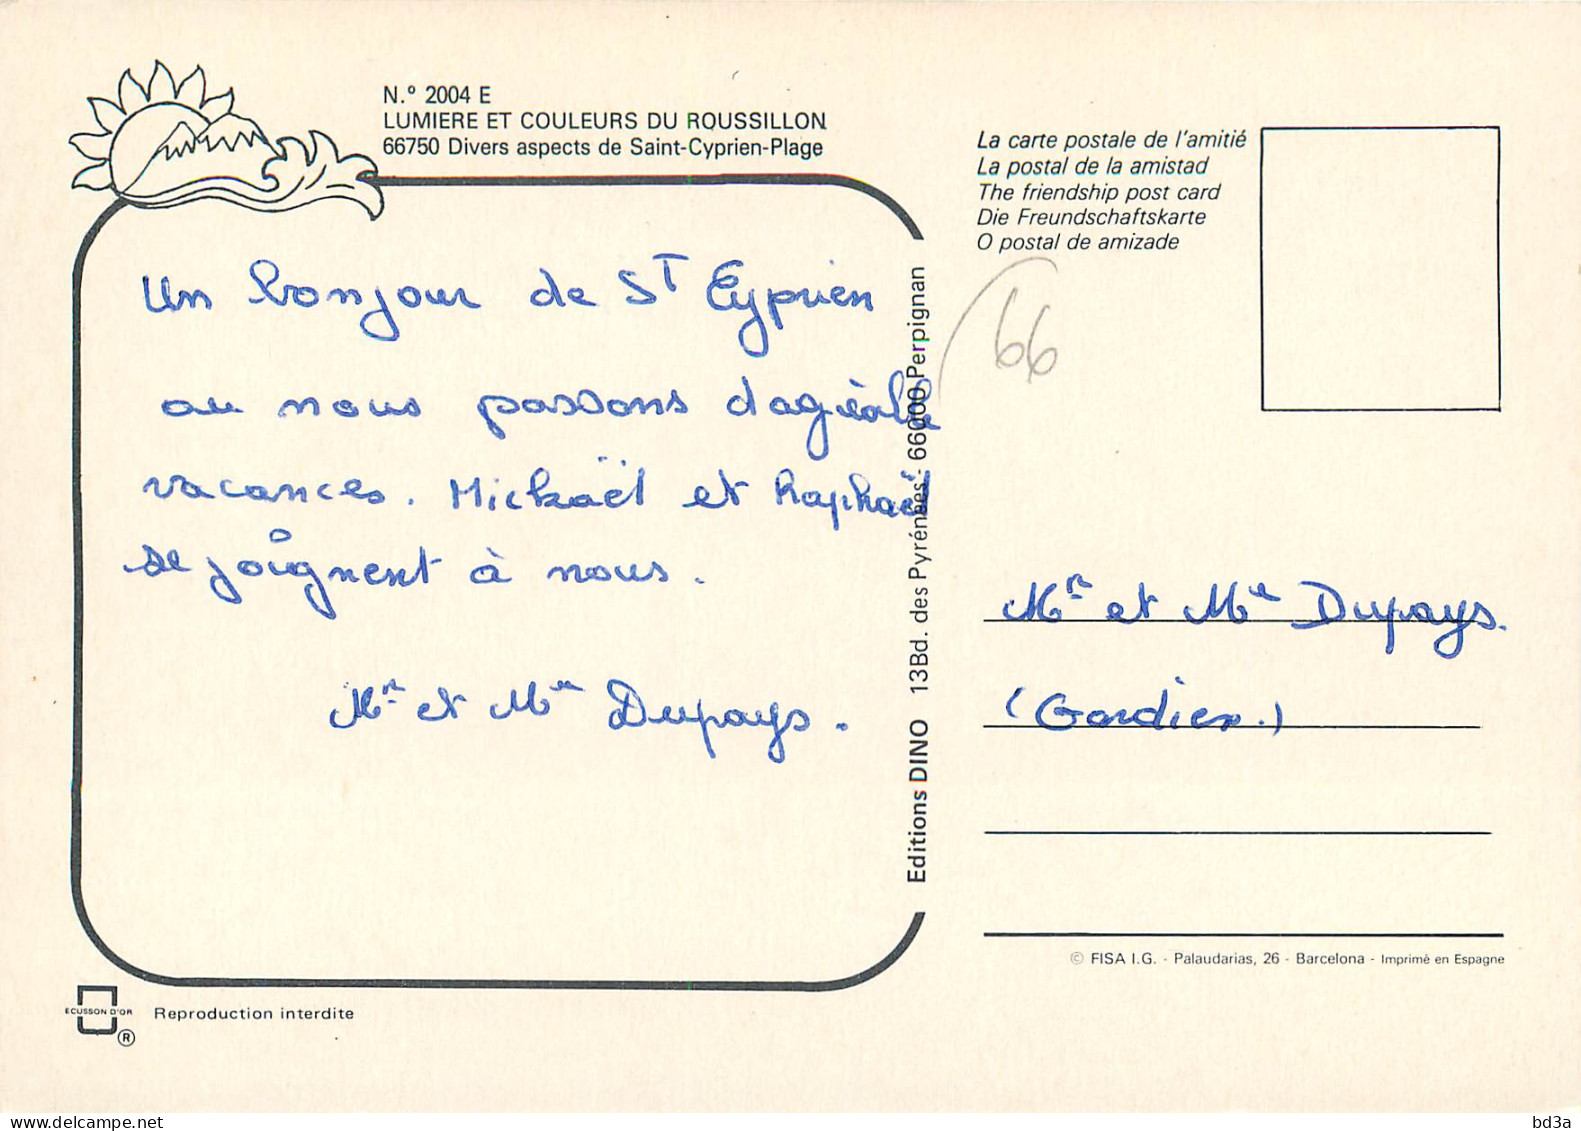 N.º 2004 E
LUMIERE ET COULEURS DU ROUSSILLON
66750 Divers aspects de Saint-Cyprien-Plage
La carte postale de l'amitié
La postal de la amistad
The friendship post card
Die Freundschaftskarte
O postal de amizade
66
Un bonjour de Sᵀ Cyprien
ou nous passons d'agréable
vacances. Mickaël et Raphaël
se joignent à nous.
Mʳ et Mᵐᵉ Dupays.
Editions DINO 13Bd. des Pyrénées - 66000 Perpignan
Mʳ et Mᵐᵉ Dupays.
(Gardien.)
© FISA I.G. - Palaudarias, 26 - Barcelona - Imprimé en Espagne
ECUSSON D'OR
®
Reproduction interdite
delcampe.net
bd3a